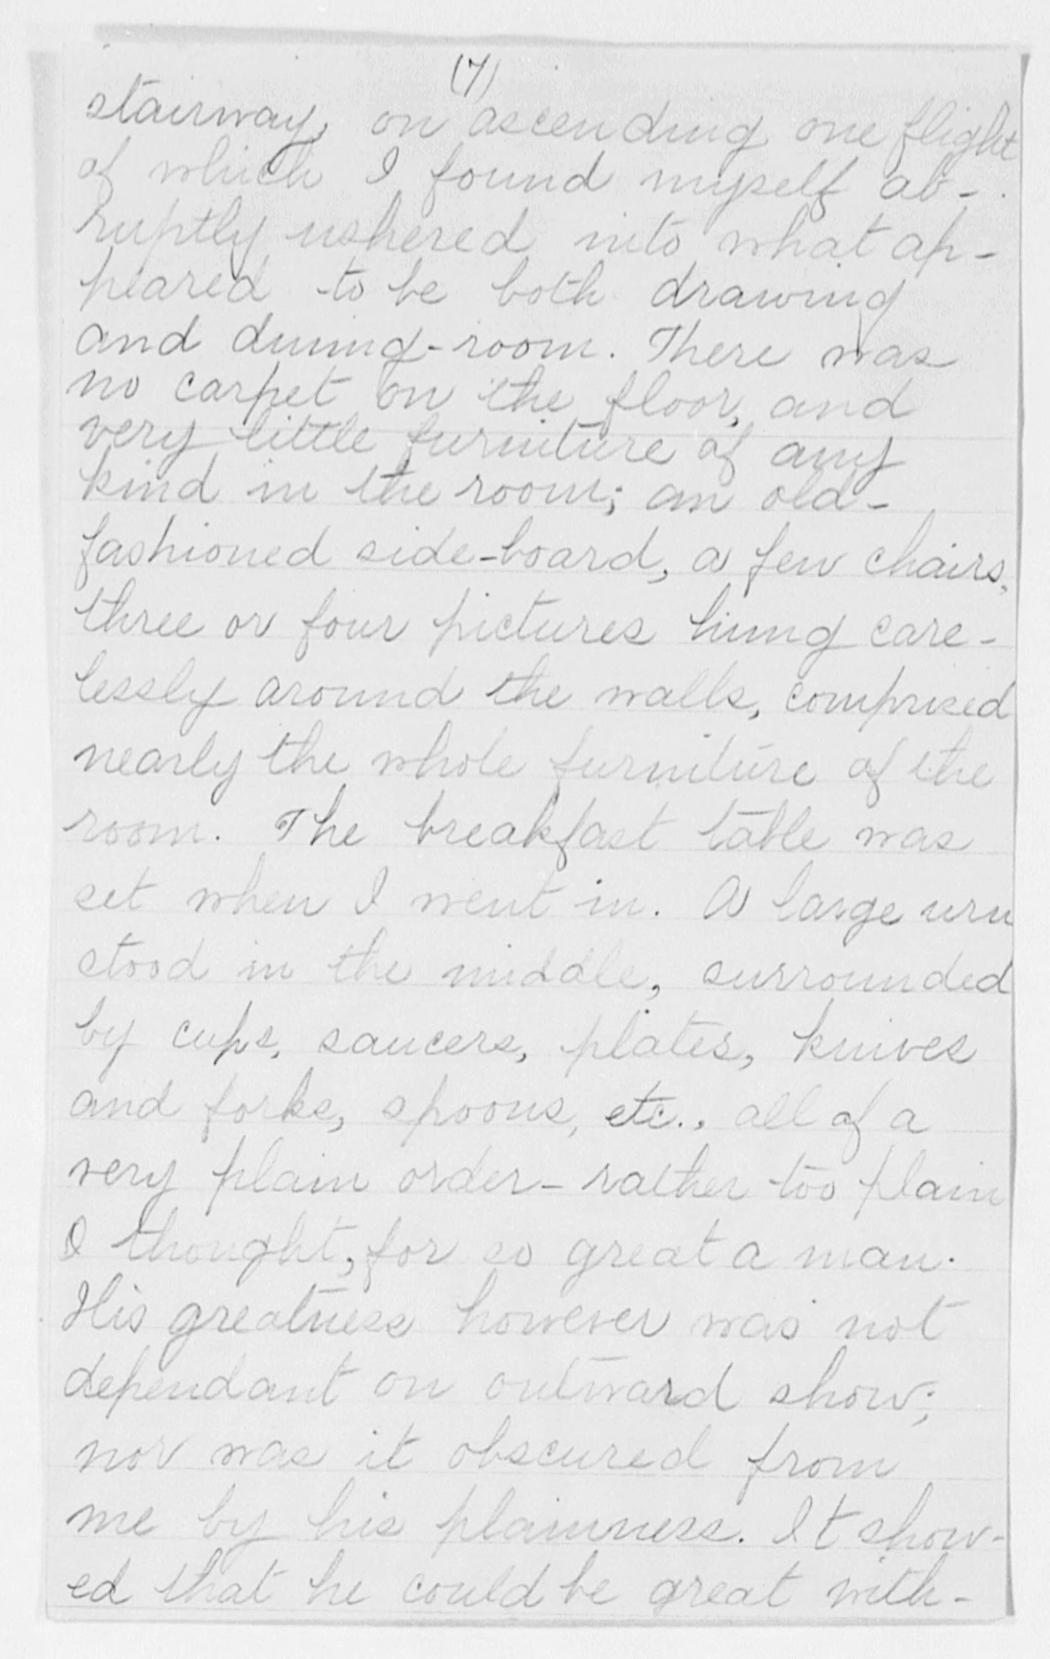 (7)
stairway, on ascending one flight
of which I found myself ab-
ruptly ushered into what ap-
peared to be both drawing
and dining-room. There was
no carpet on the floor, and
very little furniture of any
kind in the room; an old-
fashioned side-board, a few chairs,
three or four pictures hung care-
lessly around the walls, comprised
nearly the whole furniture of the
room. The breakfast table was
set when I went in. A large urn
stood in the middle, surrounded
by cups, saucers, plates, knives
and forks, spoons, etc., all of a
very plain order - rather too plain
I thought, for so great a man.
His greatness however was not
dependant on outward show;
nor was it obscured from
me by his plainness. It show-
ed that he could be great with-